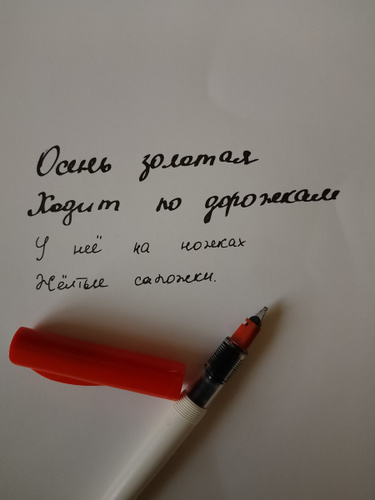 Осень золотая
Ходит по дорожкам
У неё на ножках
Жёлтые сапожки.